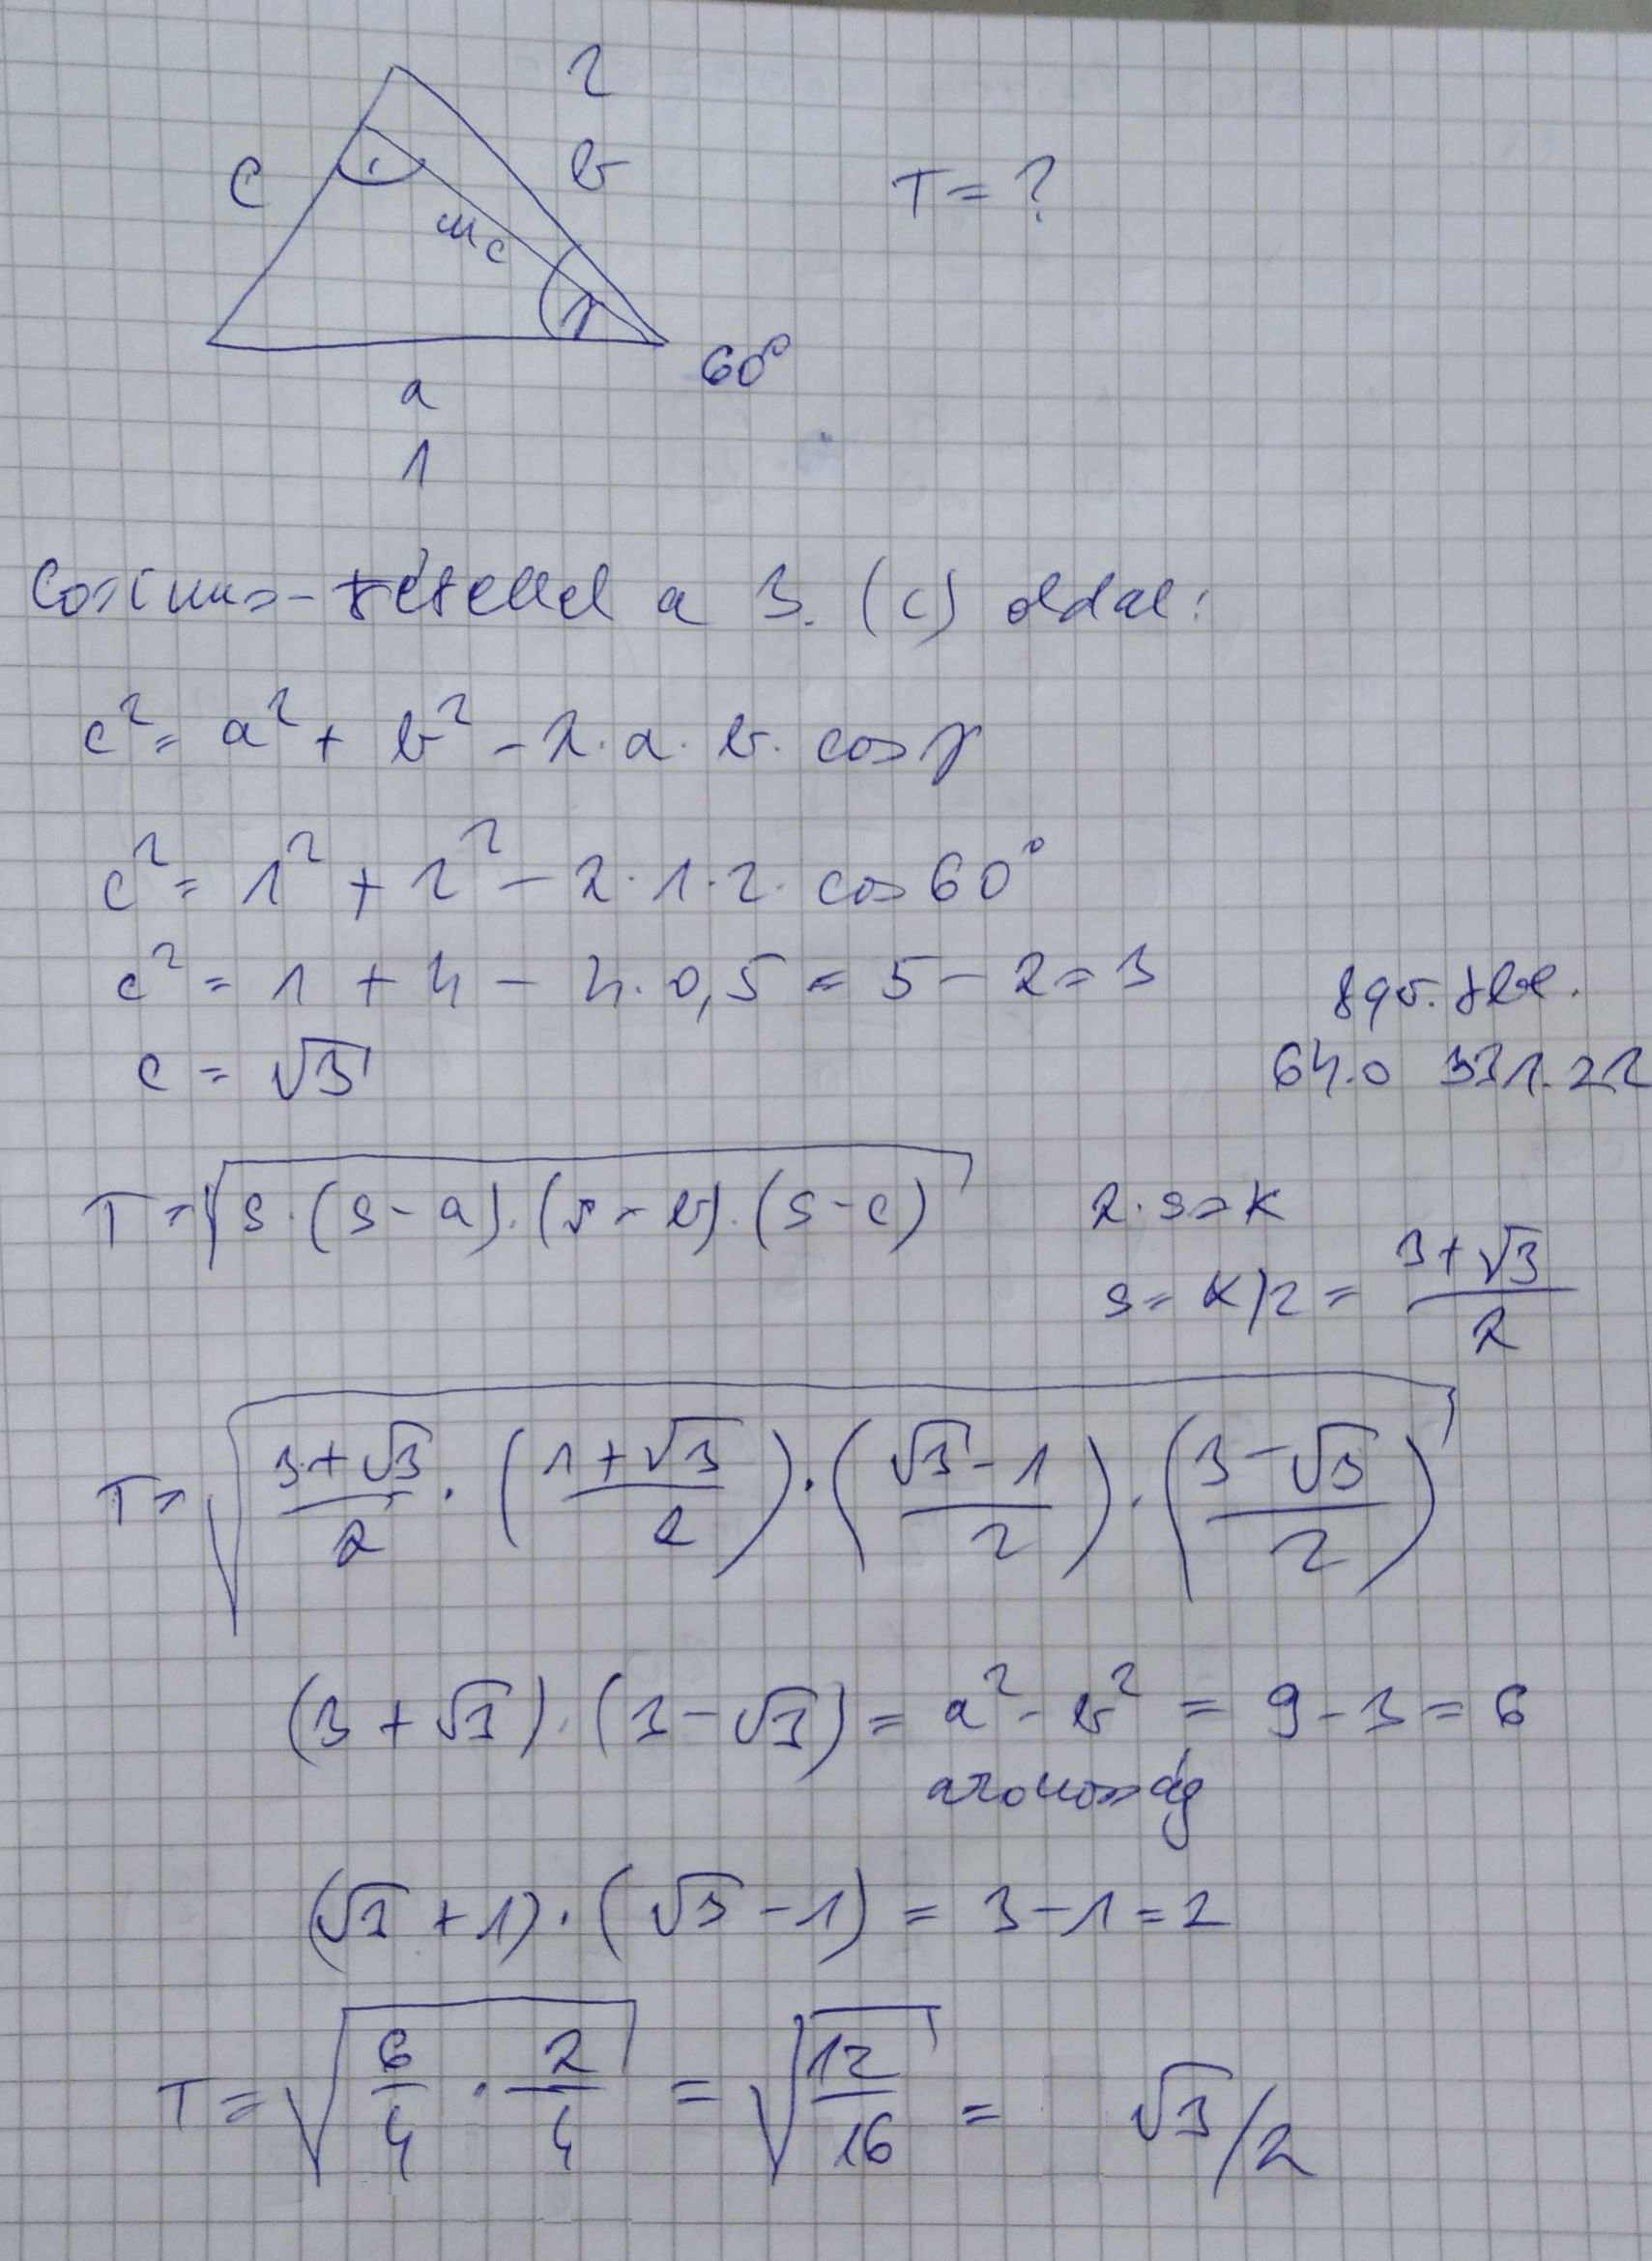 2
c b T = ?
m_c
γ 60°
a
1
Cosinus-tétellel a 3. (c) oldal:
c² = a² + b² - 2·a·b·cos γ
c² = 1² + 2² - 2·1·2·cos 60°
c² = 1 + 4 - 4·0,5 = 5 - 2 = 3
c = √3
64.o 331.22
T = √(s·(s-a)·(s-b)·(s-c)) 2·s = K
s = K/2 = (3+√3)/2
T = √((3+√3)/2 · ((1+√3)/2) · ((√3-1)/2) · ((3-√3)/2))
(3+√3)·(3-√3) = a² - b² = 9 - 3 = 6
azonosság
(√3+1)·(√3-1) = 3-1 = 2
T = √(6/4 · 2/4) = √(12/16) = √3/2